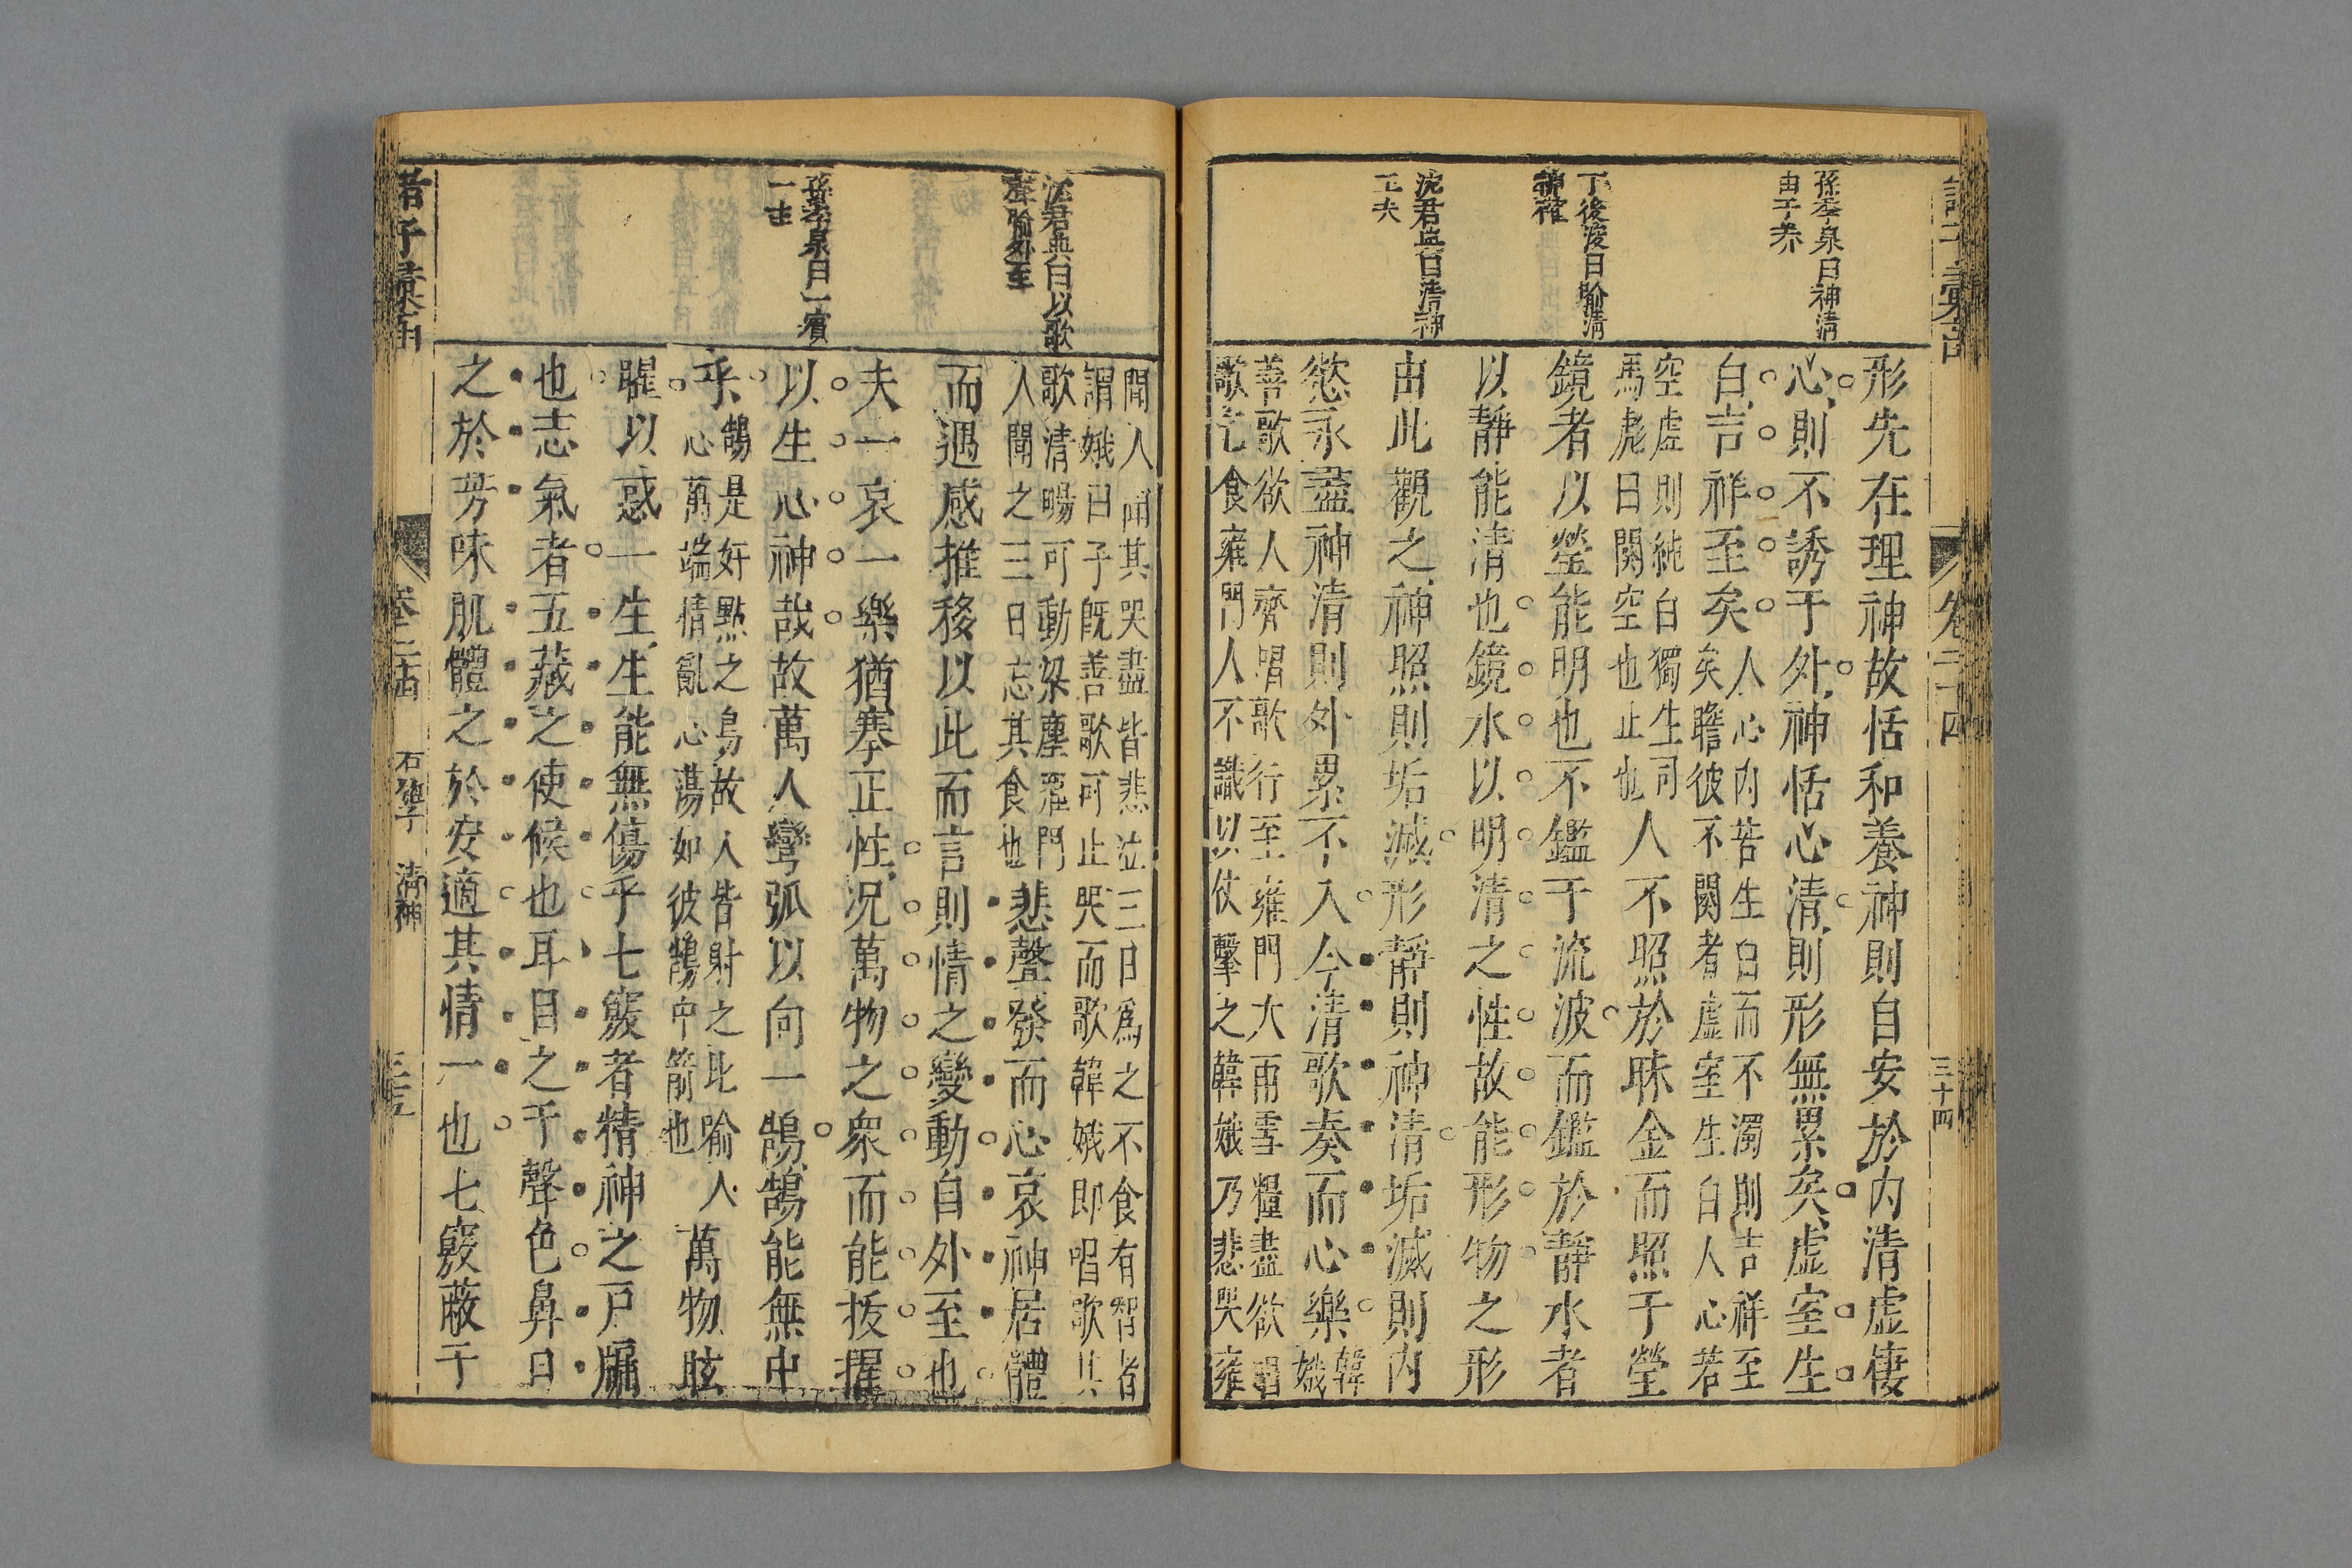 孫季泉曰神清
由于养
丁後渓曰喻淸
神確
沈君典曰清神
工夫
形先在理神故恬和養神則自安於内清虚棲
心則不誘于外神恬心清則形無累矣虚室生
白吉祥至矣
人心内苦生白而不濁則吉祥至
矣瞻彼不闋者虛室生白人心若
空虛則純白獨生司
馬彪曰闋空也止也
人不照於昧金而照于瑩
鏡者以瑩能明也不鑑于流波而鑑於静水者
以靜能清也鏡水以明清之性故能形物之形
由此觀之神照則垢滅形靜則神清垢滅則内
慾永盡神清則外累不入今清歌奏而心樂
韓
娥
善歌欲人齊唱歌行至雍門大雨雪糧盡欲唱
歌乞食雍門人不識以仗擊之韓娥乃悲哭雍
卷二十四
三十四
沈君典曰以歌
聲喻外至
孫季泉曰一賓
一主
聞人聞其哭盡皆悲泣三日爲之不食有智者
謂娥曰子旣善歌可止哭而歌韓娥即唱歌其
歌清暘可動梁塵雍門
人聞之三日忘其食也
悲聲發而心哀神居體
而遇感推移以此而言則情之變動自外至也
夫一哀一樂猶搴正性况萬物之衆而能拔擢
以生心神哉故萬人彎弧以向一鵠鵠能無中
乎
鵠是好點之鳥故人皆射之此喻人
心萬端情亂心蕩如彼鵠中箭也
萬物眩
曜以惑一生生能無傷乎七竅者精神之戸牖
也志氣者五藏之使候也耳目之于聲色鼻口
之於芳味肌體之於安適其情一也七竅蔽于
諸子彙函
卷二十四
石匏子
清神